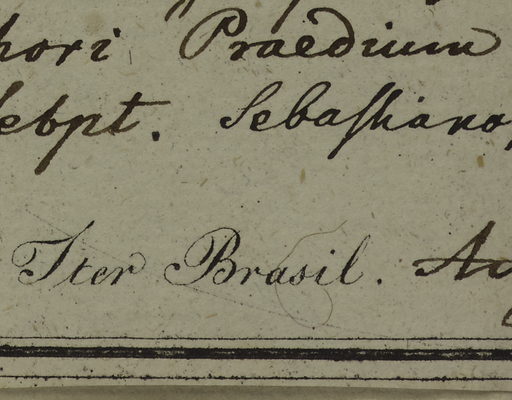 hori Praedium
Sebpt. Sebastiano
Iter Brasil.